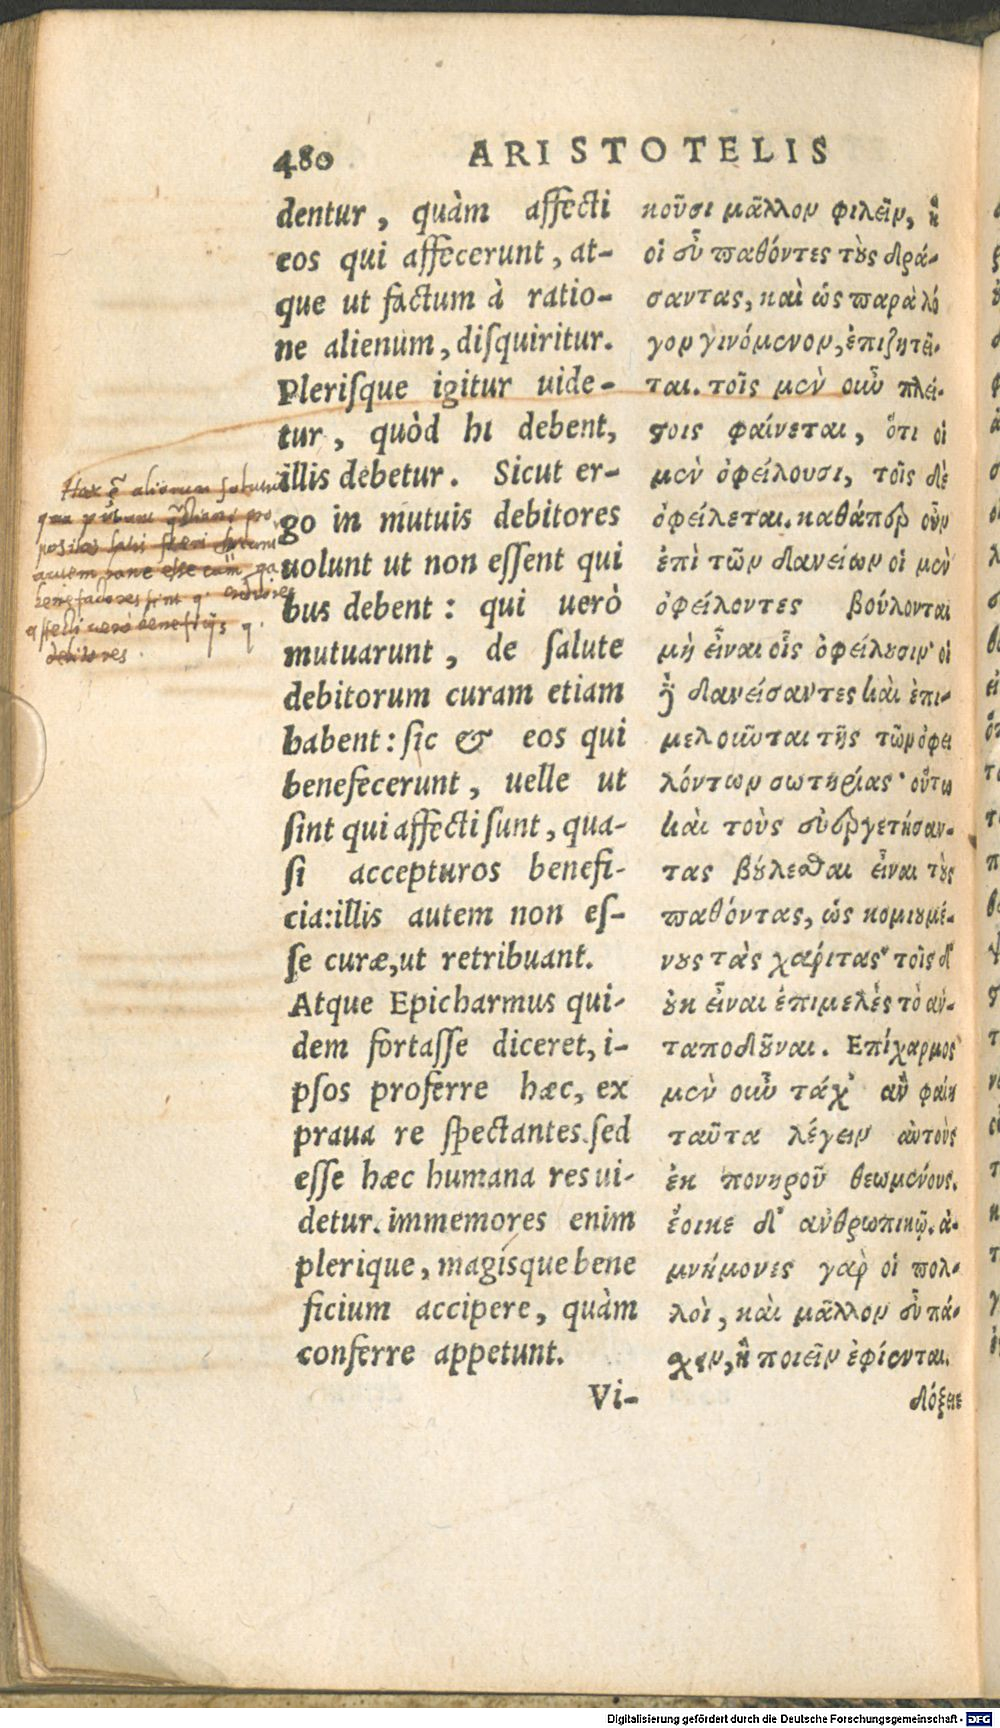 480 ARISTOTELIS
dentur, quàm affecti
eos qui affecerunt, at-
que ut factum à ratio-
ne alienum, diſquiritur.
Pleriſque igitur uide-
tur, quòd hi debent,
illis debetur. Sicut er-
go in mutuis debitores
uolunt ut non eſſent qui
bus debent: qui uerò
mutuarunt, de ſalute
debitorum curam etiam
habent: ſic & eos qui
benefecerunt, uelle ut
ſint qui affecti ſunt, qua-
ſi accepturos benefi-
cia: illis autem non eſ-
ſe curæ, ut retribuant.
Atque Epicharmus qui-
dem fortaſſe diceret, i-
pſos proferre hæc, ex
praua re ſpectantes. ſed
eſſe hæc humana res ui-
detur. immemores enim
plerique, magisque bene
ficium accipere, quàm
conferre appetunt.
Vi-
κοῦσι μᾶλλον φιλεῖν, ἢ
οἱ εὖ παθόντες τοὺς δρά-
σαντας, καὶ ὡς παρὰ λό
γον γινόμενον, ἐπιζητεῖ-
ται. τοῖς μὲν οὖν πλεί-
στοις φαίνεται, ὅτι οἱ
μὲν ὀφείλουσι, τοῖς δὲ
ὀφείλεται. καθάπερ οὖν
ἐπὶ τῶν δανείων οἱ μὲν
ὀφείλοντες βούλονται
μὴ εἶναι οἷς ὀφείλουσιν· οἱ
δὲ δανείσαντες καὶ ἐπι-
μελοῦνται τῆς τῶν ὀφει
λόντων σωτηρίας· οὕτω
καὶ τοὺς εὐεργετήσαν-
τας βούλεσθαι εἶναι τοὺς
παθόντας, ὡς κομιουμέ-
νους τὰς χάριτας· τοῖς δ'
οὐκ εἶναι ἐπιμελὲς τὸ ἀν-
ταποδοῦναι. Επίχαρμος
μὲν οὖν τάχ' ἂν φαίη
ταῦτα λέγειν αὐτοὺς
ἐκ πονηροῦ θεωμένους.
ἔοικε δ' ἀνθρωπικῷ. ἀ-
μνήμονες γὰρ οἱ πολ-
λοὶ, καὶ μᾶλλον εὖ πά-
σχειν, ἢ ποιεῖν ἐφίενται.
δόξειε
aliorum
esse
benefactores sint
affecti uero beneficijs
debitores.
Digitalisierung gefördert durch die Deutsche Forschungsgemeinschaft - DFG